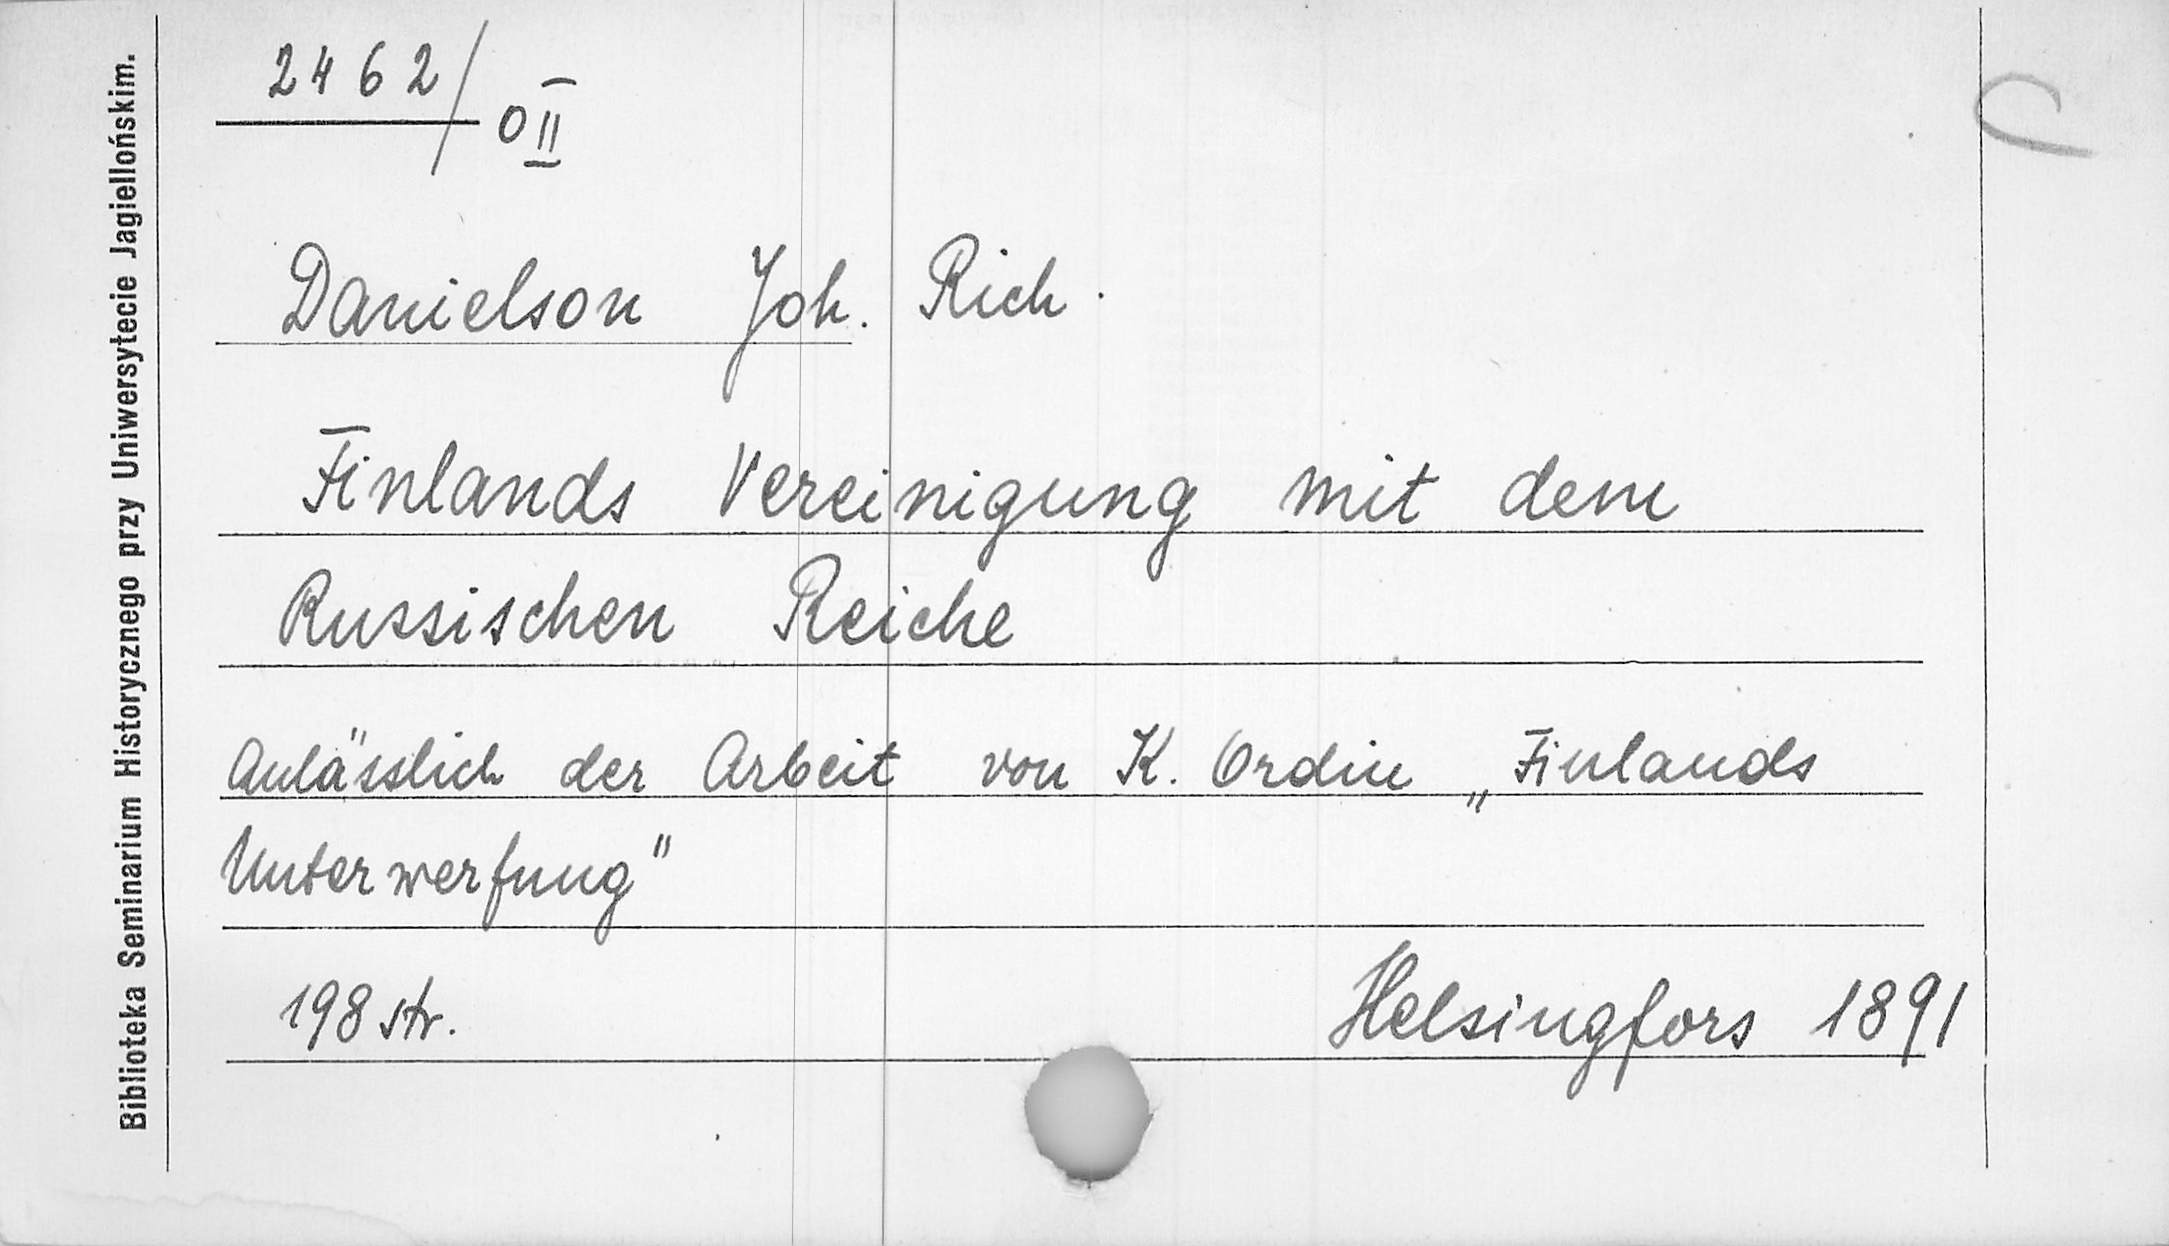 Biblioteka Seminarium Historycznego przy Uniwersytecie Jagiellońskim.
2462/0 II
Danielson Joh. Rich.
Finlands Vereinigung mit dem
Russischen Reiche
Anlässlich der Arbeit von K. Ordin „Finlands
Unterwerfung"
198 str.
Helsingfors 1891